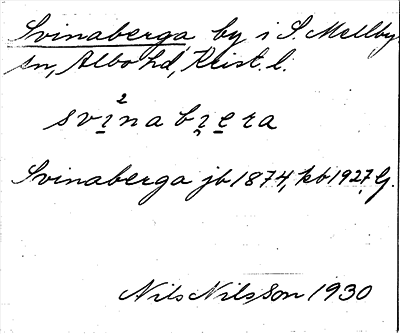 Svinaberga, by i S. Mellby
sn, Albo hd, Krist. l.
svi²nabi̯era
Svinaberga jb 1874, kb 1927. G.
Nils Nilsson 1930